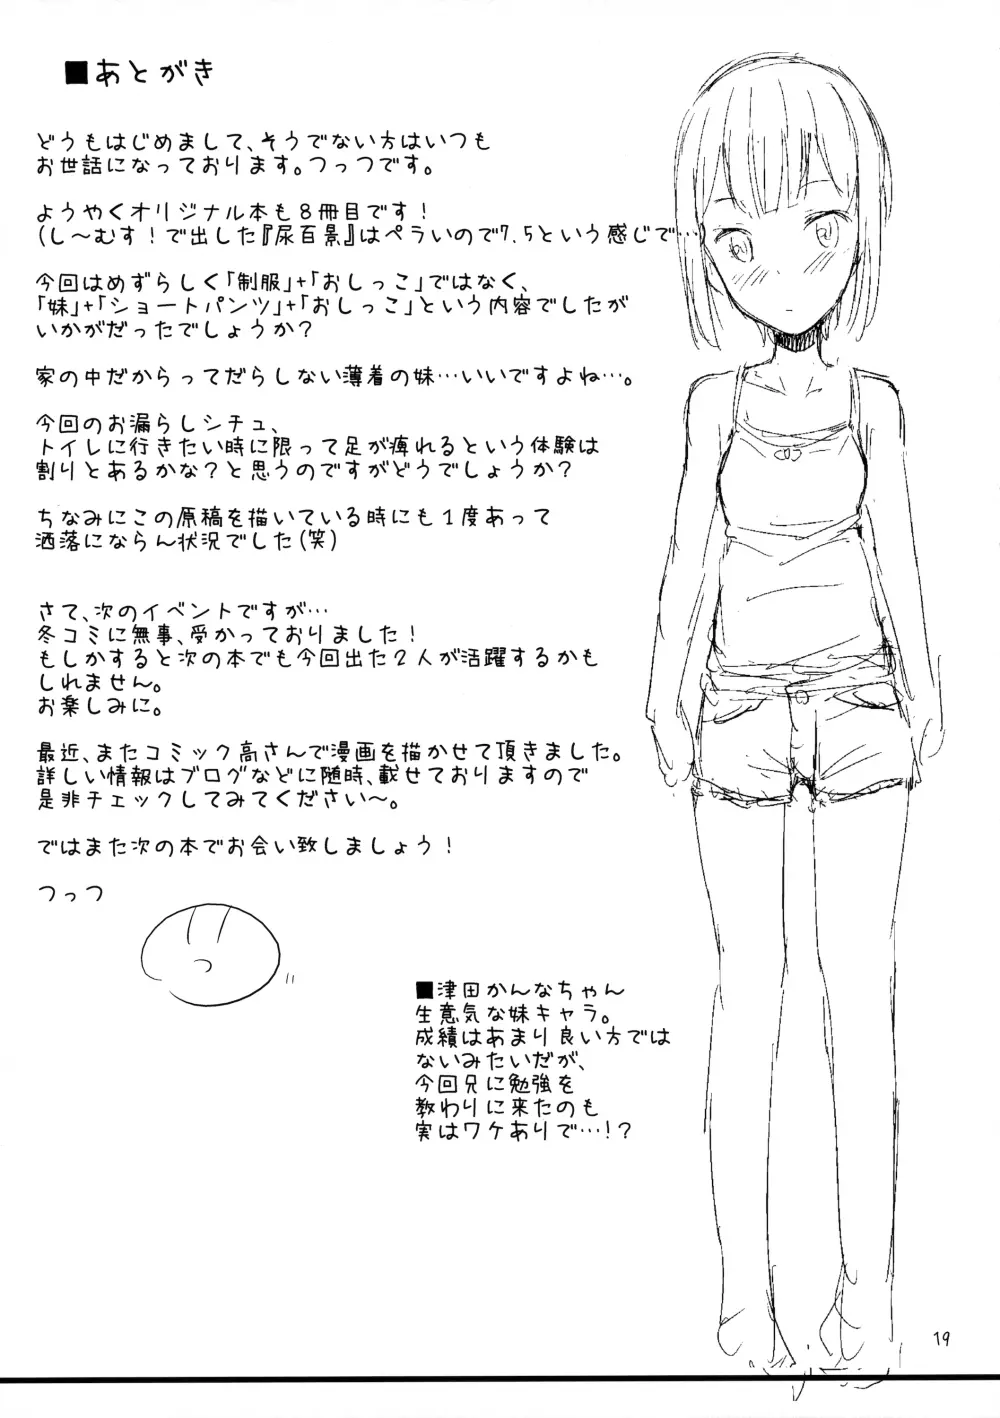 ■あとがき
どうもはじめまして、そうでない方はいつも
お世話になっております。つっつです。
ようやくオリジナル本も8冊目です！
(し～むす！で出した『尿百景』はペラいので7.5という感じで…
今回はめずらしく「制服」+「おしっこ」ではなく、
「妹」+「ショートパンツ」+「おしっこ」という内容でしたが
いかがだったでしょうか？
家の中だからってだらしない薄着の妹…いいですよね…。
今回のお漏らしシチュ、
トイレに行きたい時に限って足が痺れるという体験は
割りとあるかな？と思うのですがどうでしょうか？
ちなみにこの原稿を描いている時にも1度あって
洒落にならん状況でした(笑)
さて、次のイベントですが…
冬コミに無事、受かっておりました！
もしかすると次の本でも今回出た2人が活躍するかも
しれません。
お楽しみに。
最近、またコミック高さんで漫画を描かせて頂きました。
詳しい情報はブログなどに随時、載せておりますので
是非チェックしてみてください～。
ではまた次の本でお会い致しましょう！
つっつ
■津田かんなちゃん
生意気な妹キャラ。
成績はあまり良い方では
ないみたいだが、
今回兄に勉強を
教わりに来たのも
実はワケありで…！？
19